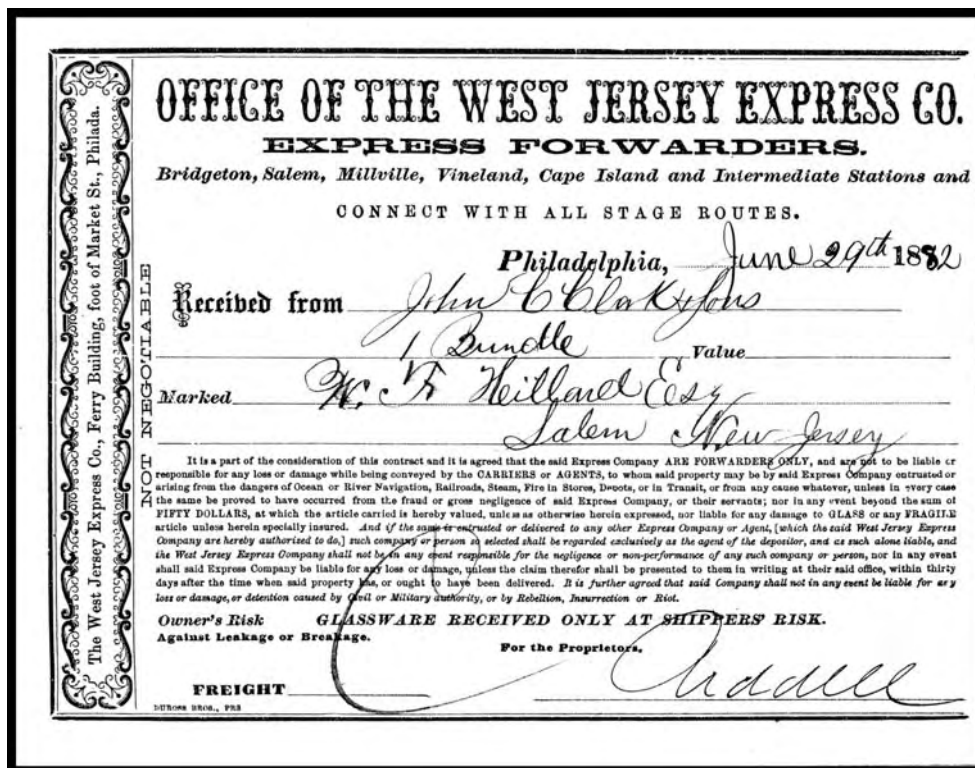 OFFICE OF THE WEST JERSEY EXPRESS CO.
EXPRESS FORWARDERS.
Bridgeton, Salem, Millville, Vineland, Cape Island and Intermediate Stations and
CONNECT WITH ALL STAGE ROUTES.
Philadelphia, June 29th 1882
Received from John C Clark & Sons
1 Bundle Value
Marked W. F. Heillard Esq
Salem New Jersey
It is a part of the consideration of this contract and it is agreed that the said Express Company ARE FORWARDERS ONLY, and are not to be liable or
responsible for any loss or damage while being conveyed by the CARRIERS or AGENTS, to whom said property may be by said Express Company entrusted or
arising from the dangers of Ocean or River Navigation, Railroads, Steam, Fire in Stores, Depots, or in Transit, or from any cause whatever, unless in every case
the same be proved to have occurred from the fraud or gross negligence of said Express Company, or their servants; nor in any event beyond the sum of
FIFTY DOLLARS, at which the article carried is hereby valued, unless otherwise herein expressed, nor liable for any damage to GLASS or any FRAGILE
article unless herein specially insured. And if the same is entrusted or delivered to any other Express Company or Agent, [which the said West Jersey Express
Company are hereby authorised to do,] such company or person so selected shall be regarded exclusively as the agent of the depositor, and as such alone liable, and
the West Jersey Express Company shall not be in any event responsible for the negligence or non-performance of any such company or person, nor in any event
shall said Express Company be liable for any loss or damage, unless the claim therefor shall be presented to them in writing at their said office, within thirty
days after the time when said property has, or ought to have been delivered. It is further agreed that said Company shall not in any event be liable for any
loss or damage, or detention caused by Civil or Military authority, or by Rebellion, Insurrection or Riot.
Owner's Risk GLASSWARE RECEIVED ONLY AT SHIPPERS' RISK.
Against Leakage or Breakage.
For the Proprietors,
FREIGHT
DUROSS BROS., PRS
NOT NEGOTIABLE
The West Jersey Express Co., Ferry Building, foot of Market St., Philada.